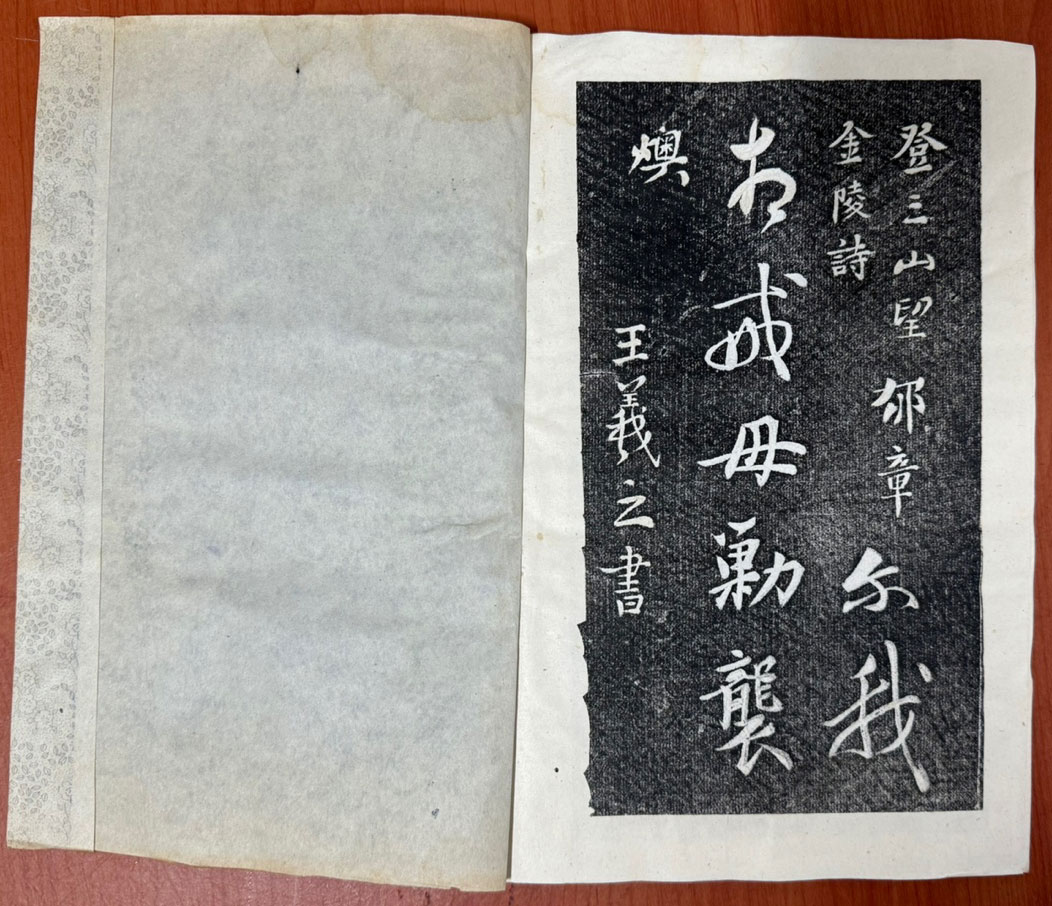 登三山望
金陵詩
章
尔我
相戒毋勦襲
燠
王羲之書